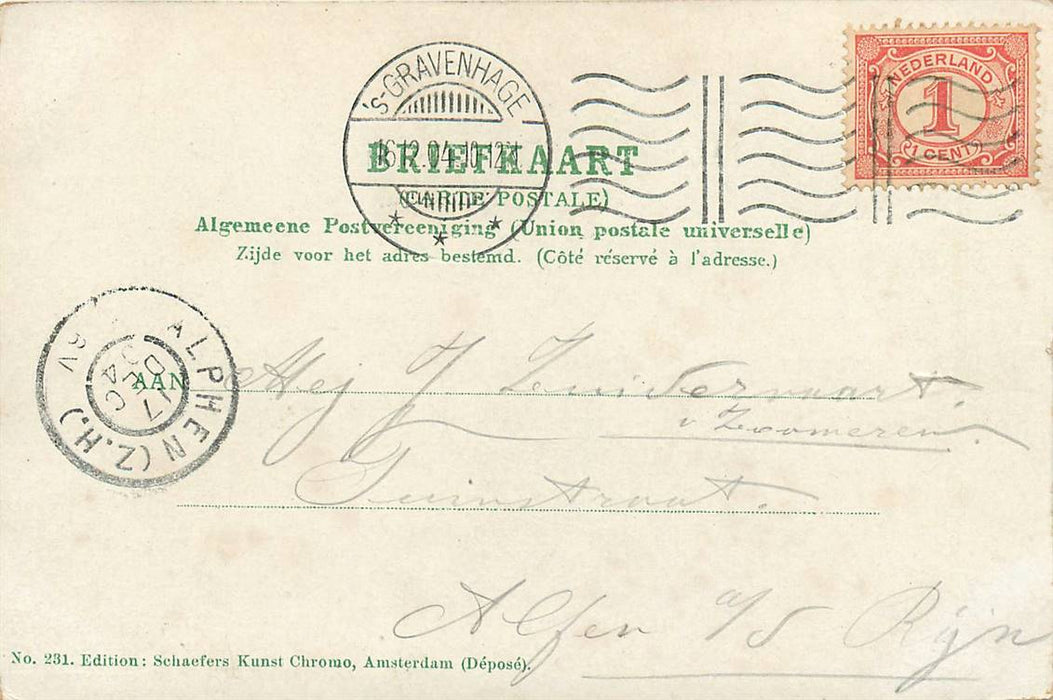 'S-GRAVENHAGE
16.12.04.10-12V
NEDERLAND
1
1 CENT
BRIEFKAART
(CARTE POSTALE)
Algemeene Postvereeniging (Union postale universelle)
Zijde voor het adres bestemd. (Côté réservé à l'adresse.)
ALPHEN (Z.H.)
17 DEC 04
6V
AAN Mej J Zuidervaart.
v Zoomeren
Tuinstraat.
Alfen a/d Rijn
No. 231. Edition: Schaefers Kunst Chromo, Amsterdam (Déposé).